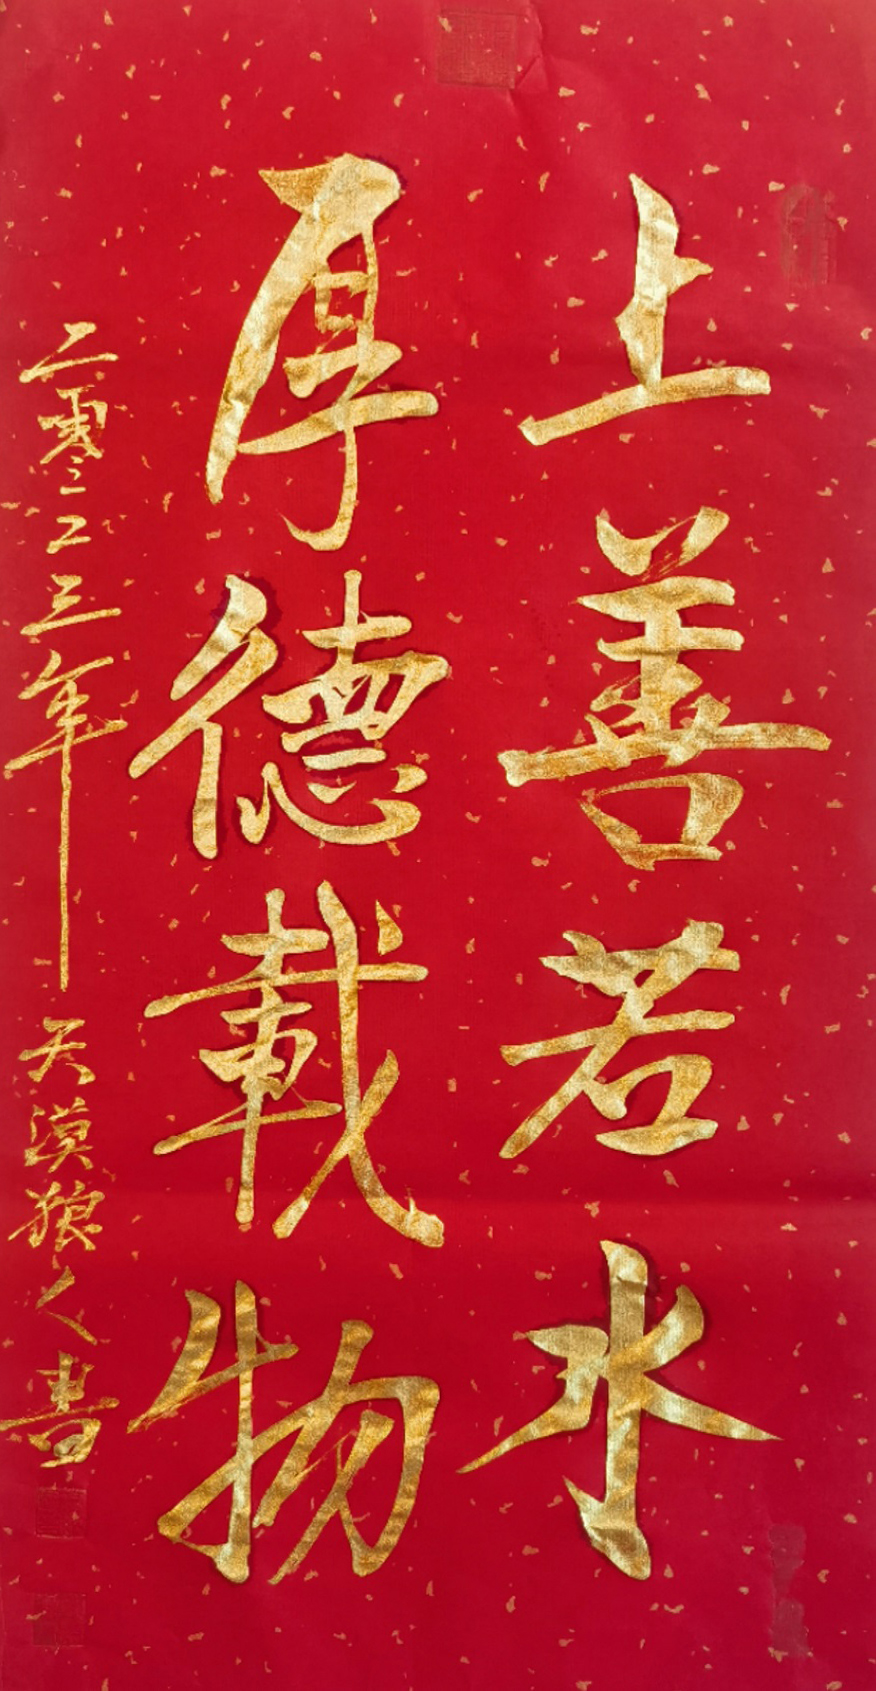 上善若水
厚德載物
二零二三年 天漠狼人書